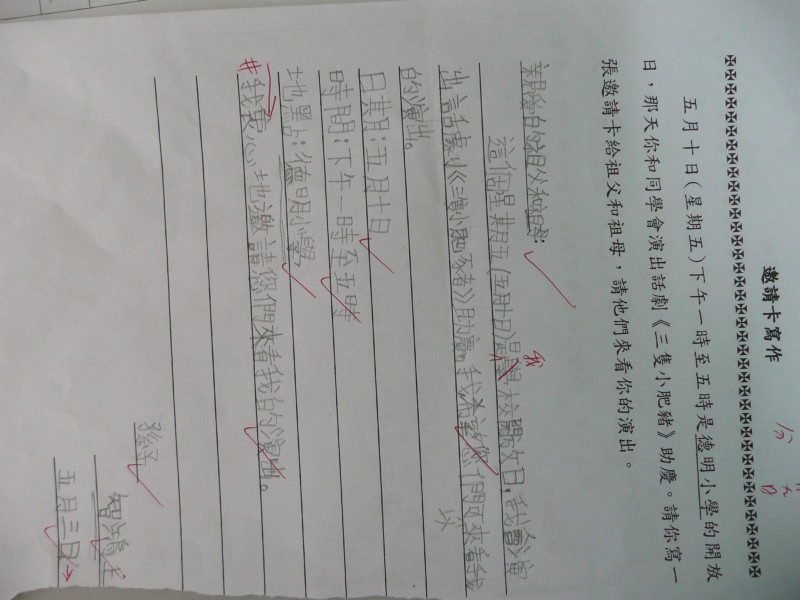 邀請卡寫作
五月十日(星期五)下午一時至五時是德明小學的開放
日,那天你和同學會演出話劇《三隻小肥豬》助慶。請你寫一
張邀請卡給祖父和祖母,請他們來看你的演出。
親愛的祖父和祖母:
這個星期五(五月十日)是學校開放日,我會演
我
出話劇《三隻小肥豬》助慶。我希望你們可來看我
以
的演出。
日期:五月十日
時間:下午一時至五時
地點:德明小學
#我衷心地邀請您們來看我的演出。
孫兒
五月三日